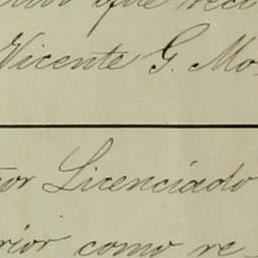 que reci
Vicente G. Mo-
or Licenciado
rior como re-